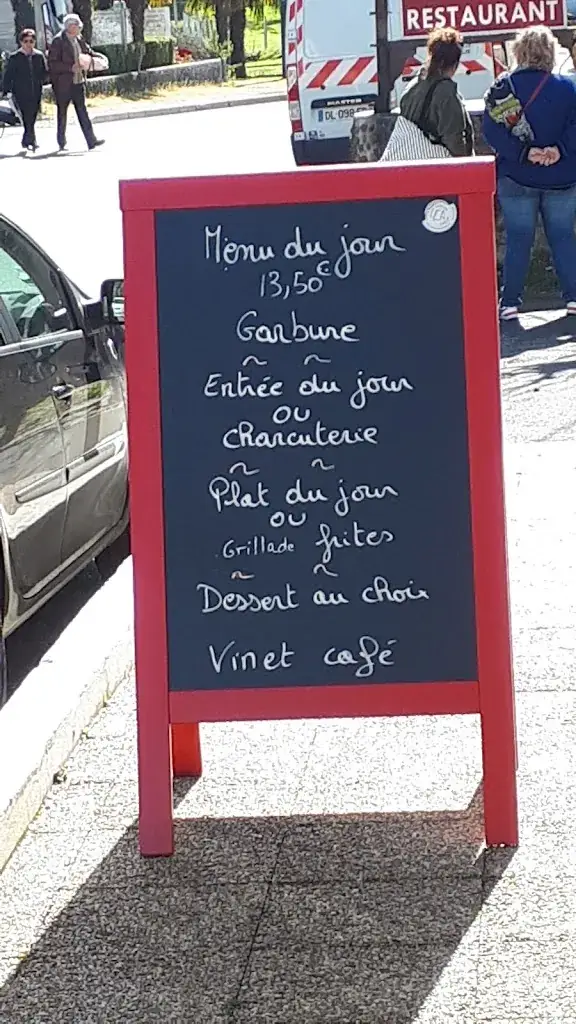 RESTAURANT
MASTER
Menu du jour
13,50€
Garbure
~ ~
Entrée du jour
ou
charcuterie
~ ~
Plat du jour
ou
Grillade frites
~ ~
Dessert au choix
Vin et café